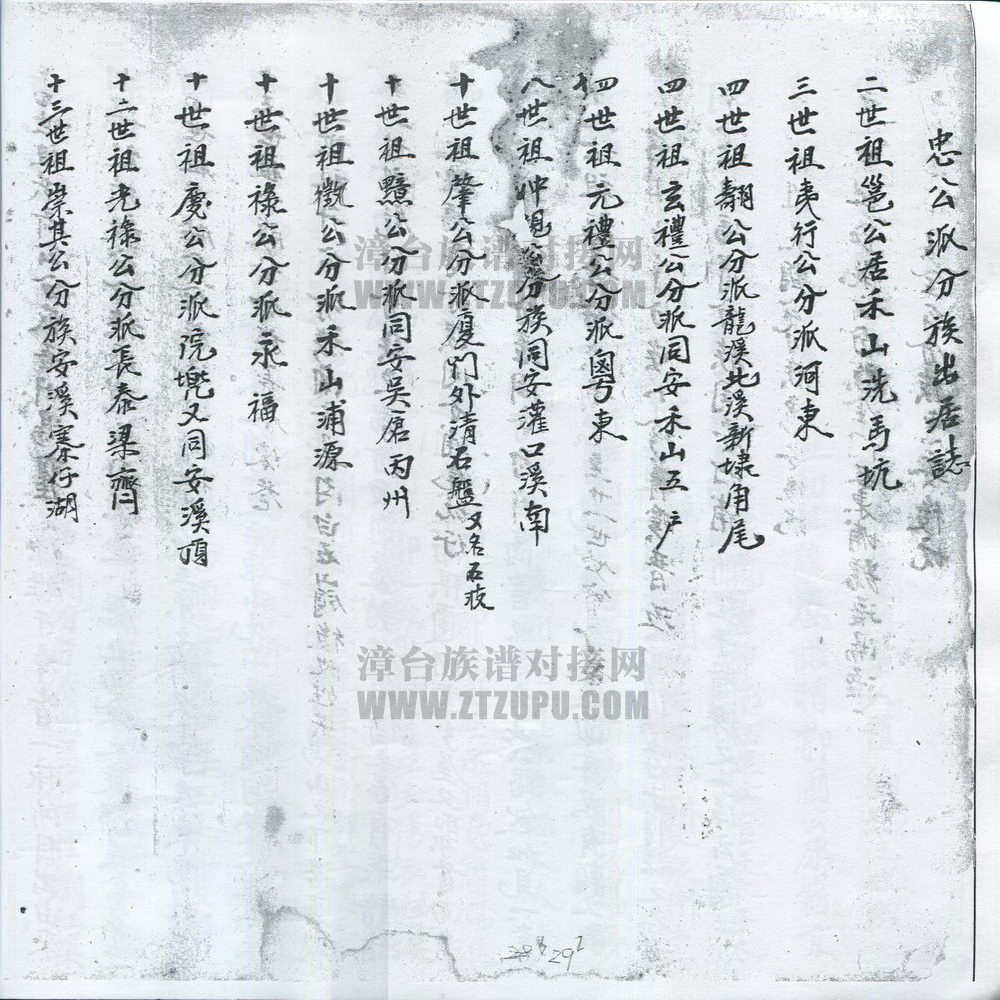 忠公派分族出居誌
二世祖邕公居禾山洗馬坑
三世祖夷行公分派河東
四世祖翱公分派龍溪北溪新埭角尾
四世祖玄禮公分派同安禾山五户
四世祖元禮公分派粵東
八世祖仲 公分族同安灌口溪南
十世祖肇公分派廈门外清石盤又名石
十世祖黯公分派同安吳 丙州
十世祖徵公分派禾山浦源
十世祖祿公分派永福
十世祖慶公分派院 又同安溪頂
十二世祖光祿公分派長泰梁齊
十三世祖榮其公分族安溪寨仔湖
漳台族谱对接网
WWW.ZTZUPU.COM
漳台族谱对接网
WWW.ZTZUPU.COM